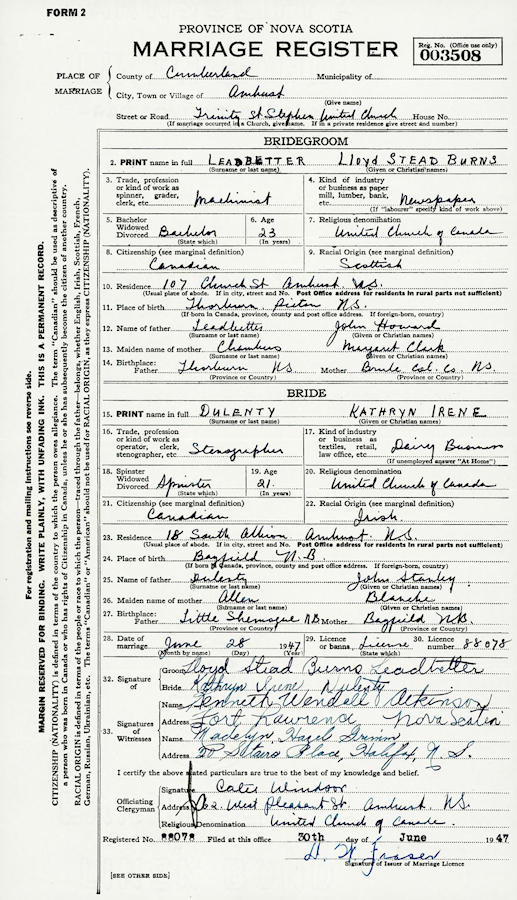 FORM 2
PROVINCE OF NOVA SCOTIA
MARRIAGE REGISTER
Reg. No. (Office use only)
003508
PLACE OF MARRIAGE
County of Cumberland Municipality of
City, Town or Village of Amherst
(Give name)
Street or Road Trinity St. Stephen United Church House No.
(If marriage occurred in a Church, give name. If in a private residence give street and number)
BRIDEGROOM
2. PRINT name in full LEADBETTER LLOYD STEAD BURNS
(Surname or last name) (Given or Christian names)
3. Trade, profession or kind of work as spinner, grader, clerk, etc. Machinist
4. Kind of industry or business as paper mill, lumber, bank, etc. Newspaper
(If "labourer" specify kind of work above)
5. Bachelor Widowed Divorced Bachelor
(State which)
6. Age 23
(In years)
7. Religious denomination
United Church of Canada
8. Citizenship (see marginal definition)
Canadian
9. Racial Origin (see marginal definition)
Scottish
10. Residence 107 Church St Amherst N.S.
(Usual place of abode. If in city, street and No. Post Office address for residents in rural parts not sufficient)
11. Place of birth Thorburn Pictou N.S.
(If born in Canada, province, county and post office address. If foreign-born, country)
12. Name of father Leadbetter John Howard
(Surname or last name) (Given or Christian names)
13. Maiden name of mother Chambers Margaret Clark
(Surname or last name) (Given or Christian names)
14. Birthplace: Father Thorburn N.S. Mother Brule Col. Co. N.S.
(Province or Country) (Province or Country)
BRIDE
15. PRINT name in full DULENTY KATHRYN IRENE
(Surname or last name) (Given or Christian names)
16. Trade, profession or kind of work as operator, clerk, stenographer, etc. Stenographer
17. Kind of industry or business as textiles, retail, law office, etc. Dairy Business
(If unemployed answer "At Home")
18. Spinster Widowed Divorced Spinster
(State which)
19. Age 21.
(In years)
20. Religious denomination
United Church of Canada
21. Citizenship (see marginal definition)
Canadian
22. Racial Origin (see marginal definition)
Irish.
23. Residence 18 South Albion Amherst N.S.
(Usual place of abode. If in city, street and No. Post Office address for residents in rural parts not sufficient)
24. Place of birth Bayfield N.B
(If born in Canada, province, county and post office address. If foreign-born, country)
25. Name of father Dulenty John Stanley
(Surname or last name) (Given or Christian names)
26. Maiden name of mother Allen Blanche
(Surname or last name) (Given or Christian names)
27. Birthplace: Father Little Shemogue NB Mother Bayfield N.B.
(Province or Country) (Province or Country)
28. Date of marriage June 28 1947
(Month by name) (Day) (Year)
29. Licence or banns. License
30. Licence number 88078
32. Signature of
Groom Lloyd Stead Burns Leadbetter
Bride Kathryn Irene Dulenty
33. Signature of Witnesses
Name Kenneth Wendell Atkinson
Address Fort Lawrence Nova Scotia
Name Madelyn Hazel
Address Stairs Place, Halifax, N.S.
I certify the above stated particulars are true to the best of my knowledge and belief.
Officiating Clergyman
Signature Windsor
Address West Pleasant St. Amherst, N.S.
Religious Denomination United Church of Canada.
Registered No. 88078 Filed at this office 30th day of June 1947
Fraser
Signature of Issuer of Marriage Licence
[SEE OTHER SIDE]
For registration and mailing instructions see reverse side.
MARGIN RESERVED FOR BINDING. WRITE PLAINLY, WITH UNFADING INK. THIS IS A PERMANENT RECORD.
CITIZENSHIP (NATIONALITY) is defined in terms of the country to which the person owes allegiance. The term "Canadian" should be used as descriptive of
a person who was born in Canada or who has rights of Citizenship in Canada, unless he or she has subsequently become the citizen of another country.
RACIAL ORIGIN is defined in terms of the people or race to which the person—traced through the father—belongs, whether English, Irish, Scottish, French,
German, Russian, Ukrainian, etc. The terms "Canadian" or "American" should not be used for RACIAL ORIGIN, as they express CITIZENSHIP (NATIONALITY).